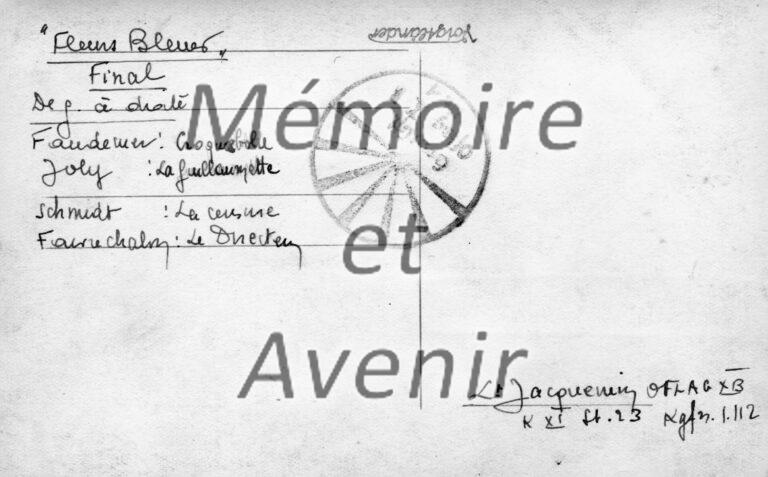 "Fleurs Bleues"
Voigtländer
Final
De g. à droite
Mémoire
Faudemer : Croquebole
Joly : La Guillaumette
Schmidt : La censure
et
: Le Directeur
Avenir
Lt Jacquemin OFLAG XIB
K XI St. 23 Kgfn. 1.112